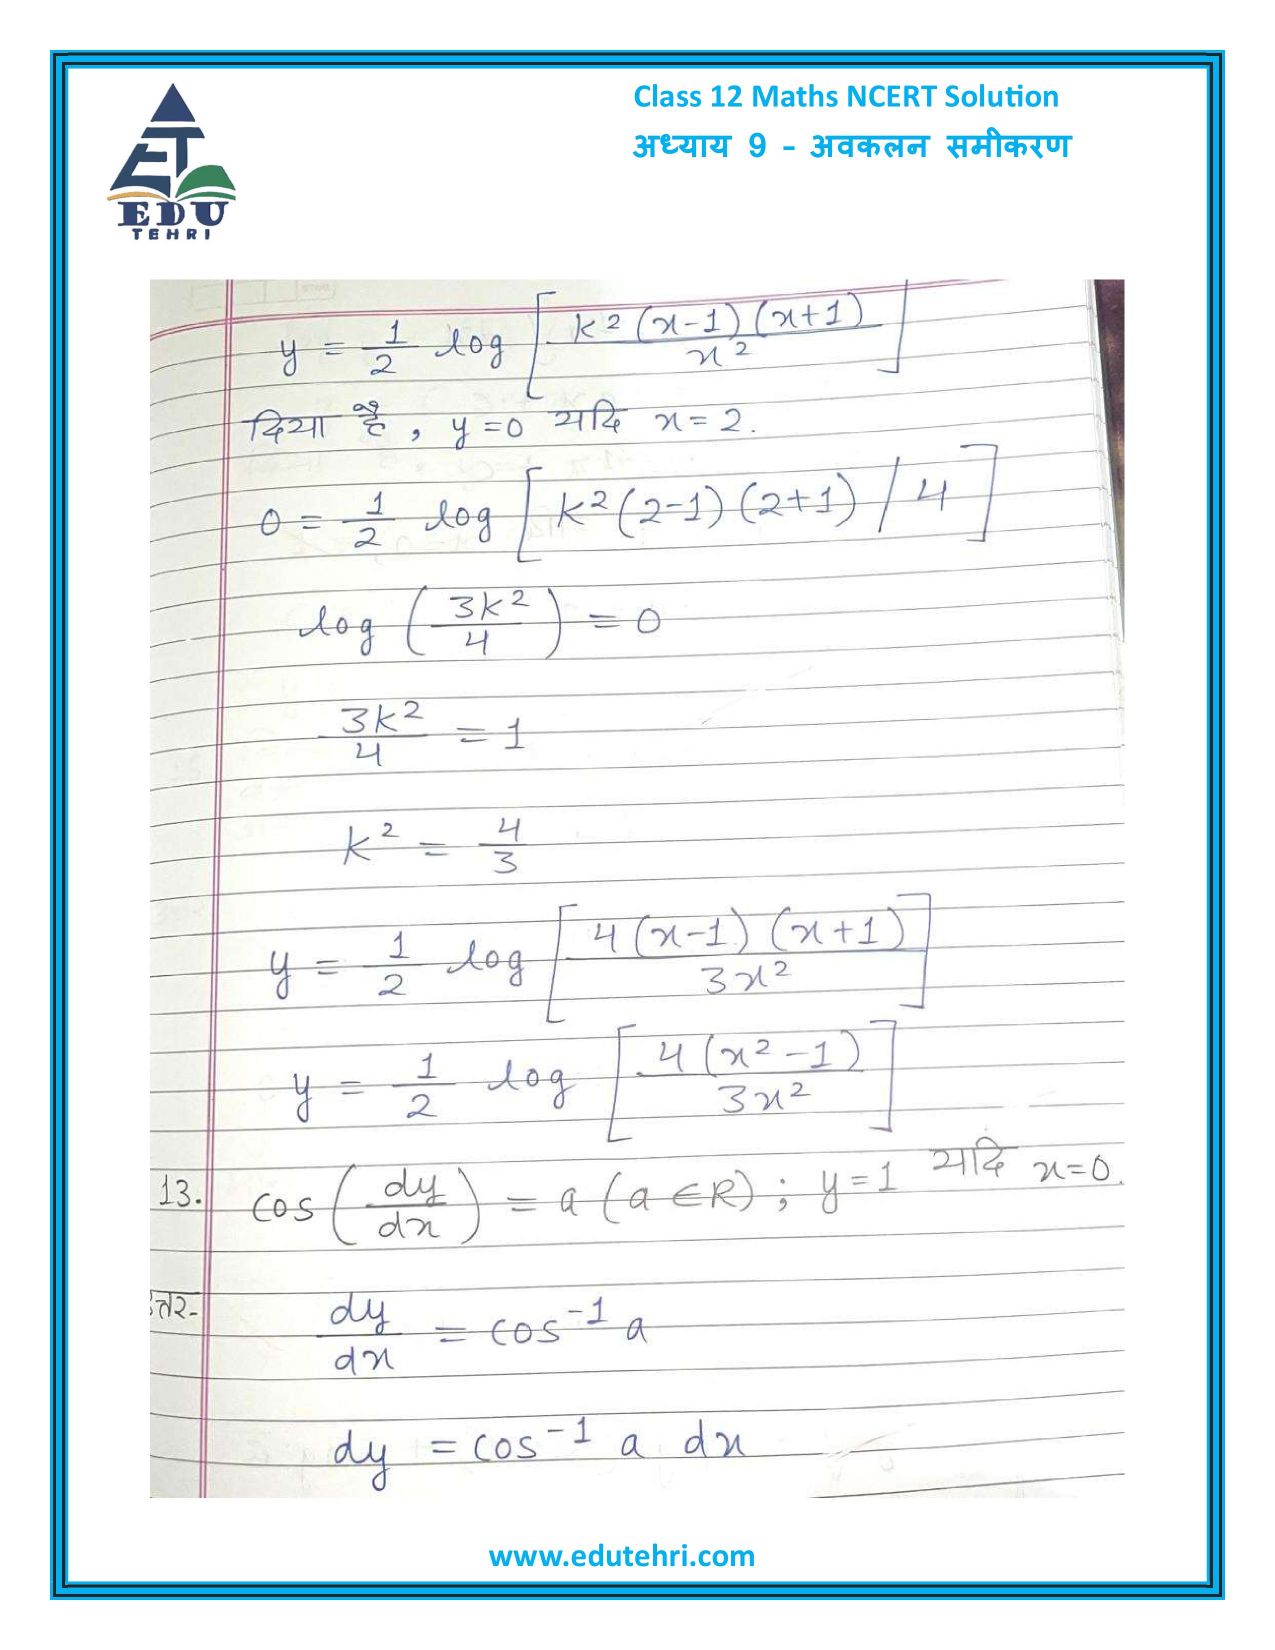 Class 12 Maths NCERT Solution
अध्याय 9 – अवकलन समीकरण
EDU
TEHRI
y = 1/2 log [k²(x-1)(x+1)/x²]
दिया है, y=0 यदि x=2.
0 = 1/2 log [k²(2-1)(2+1)/4]
log (3k²/4) = 0
3k²/4 = 1
k² = 4/3
y = 1/2 log [4(x-1)(x+1)/3x²]
y = 1/2 log [4(x²-1)/3x²]
13. cos(dy/dx) = a (a∈R); y=1 यदि x=0.
उत्तर- dy/dx = cos⁻¹ a
dy = cos⁻¹ a dx
www.edutehri.com